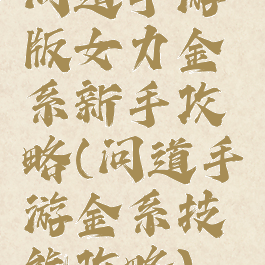 问道手游
版女力金
系新手攻
略(问道手
游金系技
能攻略)